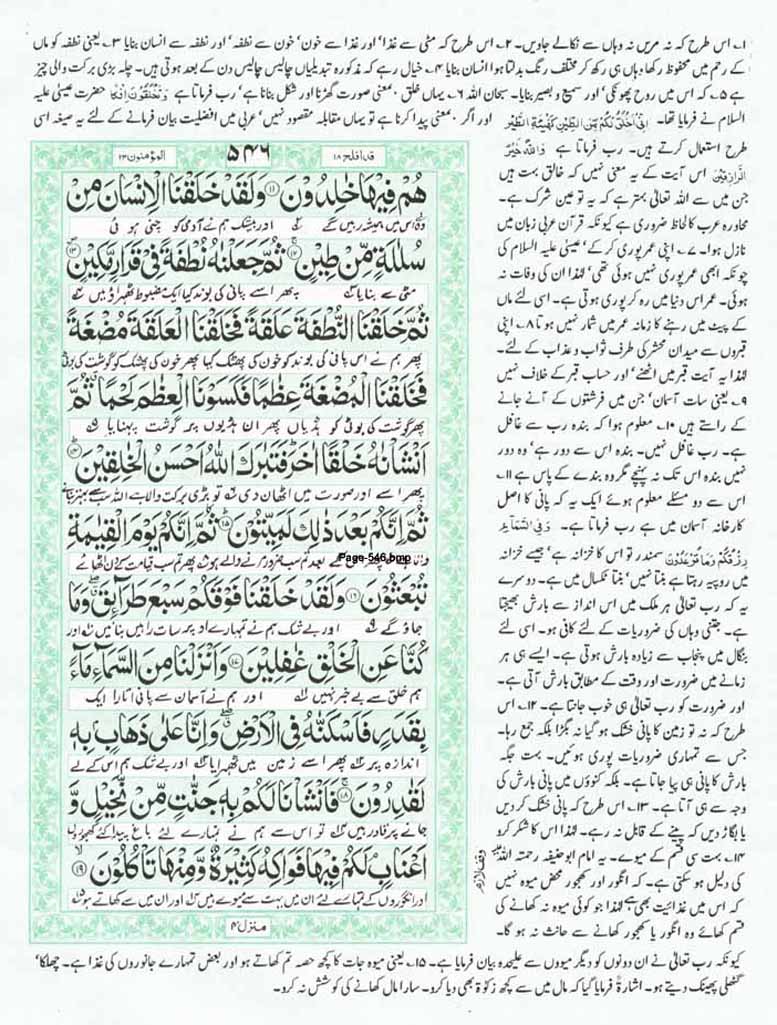 ۱۔ اس طرح کہ نہ مریں نہ وہاں سے نکالے جاویں۔ ۲۔ اس طرح کہ مٹی سے غذا' اور غذا سے خون' خون سے نطفہ' اور نطفہ سے انسان بنایا ۳۔ یعنی نطفہ کو ماں
کے رحم میں محفوظ رکھا وہاں ہی رکھ کر مختلف رنگ بدلتا ہوا انسان بنایا ۴۔ خیال رہے کہ مذکورہ تبدیلیاں چالیس چالیس دن کے بعد ہوتی ہیں۔ چلہ بڑی برکت والی چیز
ہے ۵۔ کہ اس میں روح پھونکی' اور سمیع و بصیر بنایا۔ سبحان اللہ ۶۔ یہاں خلق بمعنی صورت گھڑنا اور شکل بنانا ہے' رب فرماتا ہے وَتَخْلُقُوْنَ اِفْكًا حضرت عیسیٰ علیہ
السلام نے فرمایا تھا۔ اِنِّیْ اَخْلُقُ لَكُمْ مِّنَ الطِّیْنِ كَهَیْئَةِ الطَّیْرِ اور اگر بمعنی پیدا کرنا ہے تو یہاں مقابلہ مقصود نہیں' عربی میں افضلیت بیان فرمانے کے لئے یہ صیغہ اسی
طرح استعمال کرتے ہیں۔ رب فرماتا ہے وَاللّٰهُ خَیْرُ
الرَّازِقِیْنَ اس آیت کے یہ معنی نہیں کہ خالق بہت ہیں
جن میں سے اللہ تعالیٰ بہتر ہے کہ یہ تو عین شرک ہے۔
محاورہ عرب کا لحاظ ضروری ہے کیونکہ قرآن عربی زبان میں
نازل ہوا۔ ۷۔ اپنی عمر پوری کر کے' عیسیٰ علیہ السلام کی
چونکہ ابھی عمر پوری نہیں ہوئی تھی' لہٰذا ان کی وفات نہ
ہوئی۔ عمر اس دنیا میں رہ کر پوری ہوتی ہے۔ اسی لئے ماں
کے پیٹ میں رہنے کا زمانہ عمر میں شمار نہیں ہوتا ۸۔ اپنی
قبروں سے میدان محشر کی طرف ثواب و عذاب کے لئے۔
لہٰذا یہ آیت قبر میں اٹھنے' اور حساب قبر کے خلاف نہیں
۹۔ یعنی سات آسمان' جن میں فرشتوں کے آنے جانے
کے راستے ہیں ۱۰۔ معلوم ہوا کہ بندہ رب سے غافل
ہے۔ رب غافل نہیں۔ بندہ اس سے دور ہے' وہ دور
نہیں بندہ اس تک نہ پہنچے مگر وہ بندے کے پاس ہے ۱۱۔
اس سے دو مسئلے معلوم ہوئے ایک یہ کہ پانی کا اصل
کارخانہ آسمان میں ہے رب فرماتا ہے۔ وَفِی السَّمَآءِ
رِزْقُكُمْ وَمَا تُوْعَدُوْنَ سمندر تو اس کا خزانہ ہے' جیسے خزانہ
میں روپیہ رہتا ہے بنتا نہیں' بنتا ٹکسال میں ہے۔ دوسرے
یہ کہ رب تعالیٰ ہر ملک میں اس انداز سے بارش بھیجتا
ہے۔ جتنی وہاں کی ضروریات کے لئے کافی ہو۔ اسی لئے
بنگال میں پنجاب سے زیادہ بارش ہوتی ہے۔ ایسے ہی ہر
زمانے میں ضرورت اور وقت کے مطابق بارش آتی ہے۔
اور ضرورت کو رب تعالیٰ ہی خوب جانتا ہے۔ ۱۲۔ اس
طرح کہ نہ تو زمین کا پانی خشک ہو گیا نہ بگڑا بلکہ جمع رہا۔
جس سے تمہاری ضروریات پوری ہوئیں۔ بہت جگہ
بارش کا پانی ہی پیا جاتا ہے۔ بلکہ کنوؤں میں پانی بارش کی
وجہ سے ہی آتا ہے۔ ۱۳۔ اس طرح کہ پانی خشک کر دیں
یا بگاڑ دیں کہ پینے کے قابل نہ رہے۔ لہٰذا اس کا شکر کرو
۱۴۔ بہت سی قسم کے میوے۔ یہ امام ابو حنیفہ رحمتہ اللہ علیہ
کی دلیل ہو سکتی ہے۔ کہ انگور اور کھجور محض میوہ نہیں
کہ اس میں غذائیت بھی ہے لہٰذا جو کوئی میوہ نہ کھانے کی
قسم کھائے وہ انگور یا کھجور کھانے سے حانث نہ ہو گا۔
قد افلح ۱۸
۵۴۶
المؤمنون ۲۳
هُمْ فِیْهَا خٰلِدُوْنَ ۝۱۱ وَلَقَدْ خَلَقْنَا الْاِنْسَانَ مِنْ
وہ اس میں ہمیشہ رہیں گے اور بیشک ہم نے آدمی کو چنی ہوئی
سُلٰلَةٍ مِّنْ طِیْنٍ ۝۱۲ ثُمَّ جَعَلْنٰهُ نُطْفَةً فِیْ قَرَارٍ مَّكِیْنٍ ۝۱۳
مٹی سے بنایا پھر اسے پانی کی بوند کیا ایک مضبوط ٹھہراؤ میں
ثُمَّ خَلَقْنَا النُّطْفَةَ عَلَقَةً فَخَلَقْنَا الْعَلَقَةَ مُضْغَةً
پھر ہم نے اس پانی کی بوند کو خون کی پھٹک کیا پھر خون کی پھٹک کو گوشت کی بوٹی
فَخَلَقْنَا الْمُضْغَةَ عِظٰمًا فَكَسَوْنَا الْعِظٰمَ لَحْمًا ثُمَّ
پھر گوشت کی بوٹی کو ہڈیاں پھر ان ہڈیوں پر گوشت پہنایا
اَنْشَاْنٰهُ خَلْقًا اٰخَرَ فَتَبٰرَكَ اللّٰهُ اَحْسَنُ الْخٰلِقِیْنَ ۝۱۴
پھر اسے اور صورت میں اٹھان دی تو بڑی برکت والا ہے اللہ سب سے بہتر بنانے
ثُمَّ اِنَّكُمْ بَعْدَ ذٰلِكَ لَمَیِّتُوْنَ ۝۱۵ ثُمَّ اِنَّكُمْ یَوْمَ الْقِیٰمَةِ
Page-546.bmp
بعد تم سب ضرور مرنے والے ہو پھر تم سب قیامت کے دن اٹھائے
تُبْعَثُوْنَ ۝۱۶ وَلَقَدْ خَلَقْنَا فَوْقَكُمْ سَبْعَ طَرَآئِقَ وَمَا
جاؤ گے اور بے شک ہم نے تمہارے اوپر سات راہیں بنائیں اور
كُنَّا عَنِ الْخَلْقِ غٰفِلِیْنَ ۝۱۷ وَاَنْزَلْنَا مِنَ السَّمَآءِ مَآءً
ہم خلق سے بے خبر نہیں اور ہم نے آسمان سے پانی اتارا ایک
بِقَدَرٍ فَاَسْكَنّٰهُ فِی الْاَرْضِ وَاِنَّا عَلٰی ذَهَابٍ بِهٖ
اندازہ پر پھر اسے زمین میں ٹھہرایا اور بے شک ہم اس کے لے
لَقٰدِرُوْنَ ۝۱۸ فَاَنْشَاْنَا لَكُمْ بِهٖ جَنّٰتٍ مِّنْ نَّخِیْلٍ وَّ
جانے پر قادر ہیں تو اس سے ہم نے تمہارے لئے باغ پیدا کئے کھجوروں
اَعْنَابٍ لَكُمْ فِیْهَا فَوَاكِهُ كَثِیْرَةٌ وَّمِنْهَا تَاْكُلُوْنَ ۝۱۹
اور انگوروں کے تمہارے لئے ان میں بہت سے میوے ہیں اور ان میں سے کھاتے ہو
منزل ۴
کیونکہ رب تعالیٰ نے ان دونوں کو دیگر میووں سے علیحدہ بیان فرمایا ہے۔ ۱۵۔ یعنی میوہ جات کا کچھ حصہ تم کھاتے ہو اور بعض تمہارے جانوروں کی غذا ہے۔ چھلکا'
گٹھلی پھینک دیتے ہو۔ اشارۃً فرمایا گیا کہ مال میں سے کچھ زکوٰۃ بھی دیا کرو۔ سارا مال کھانے کی کوشش نہ کرو۔